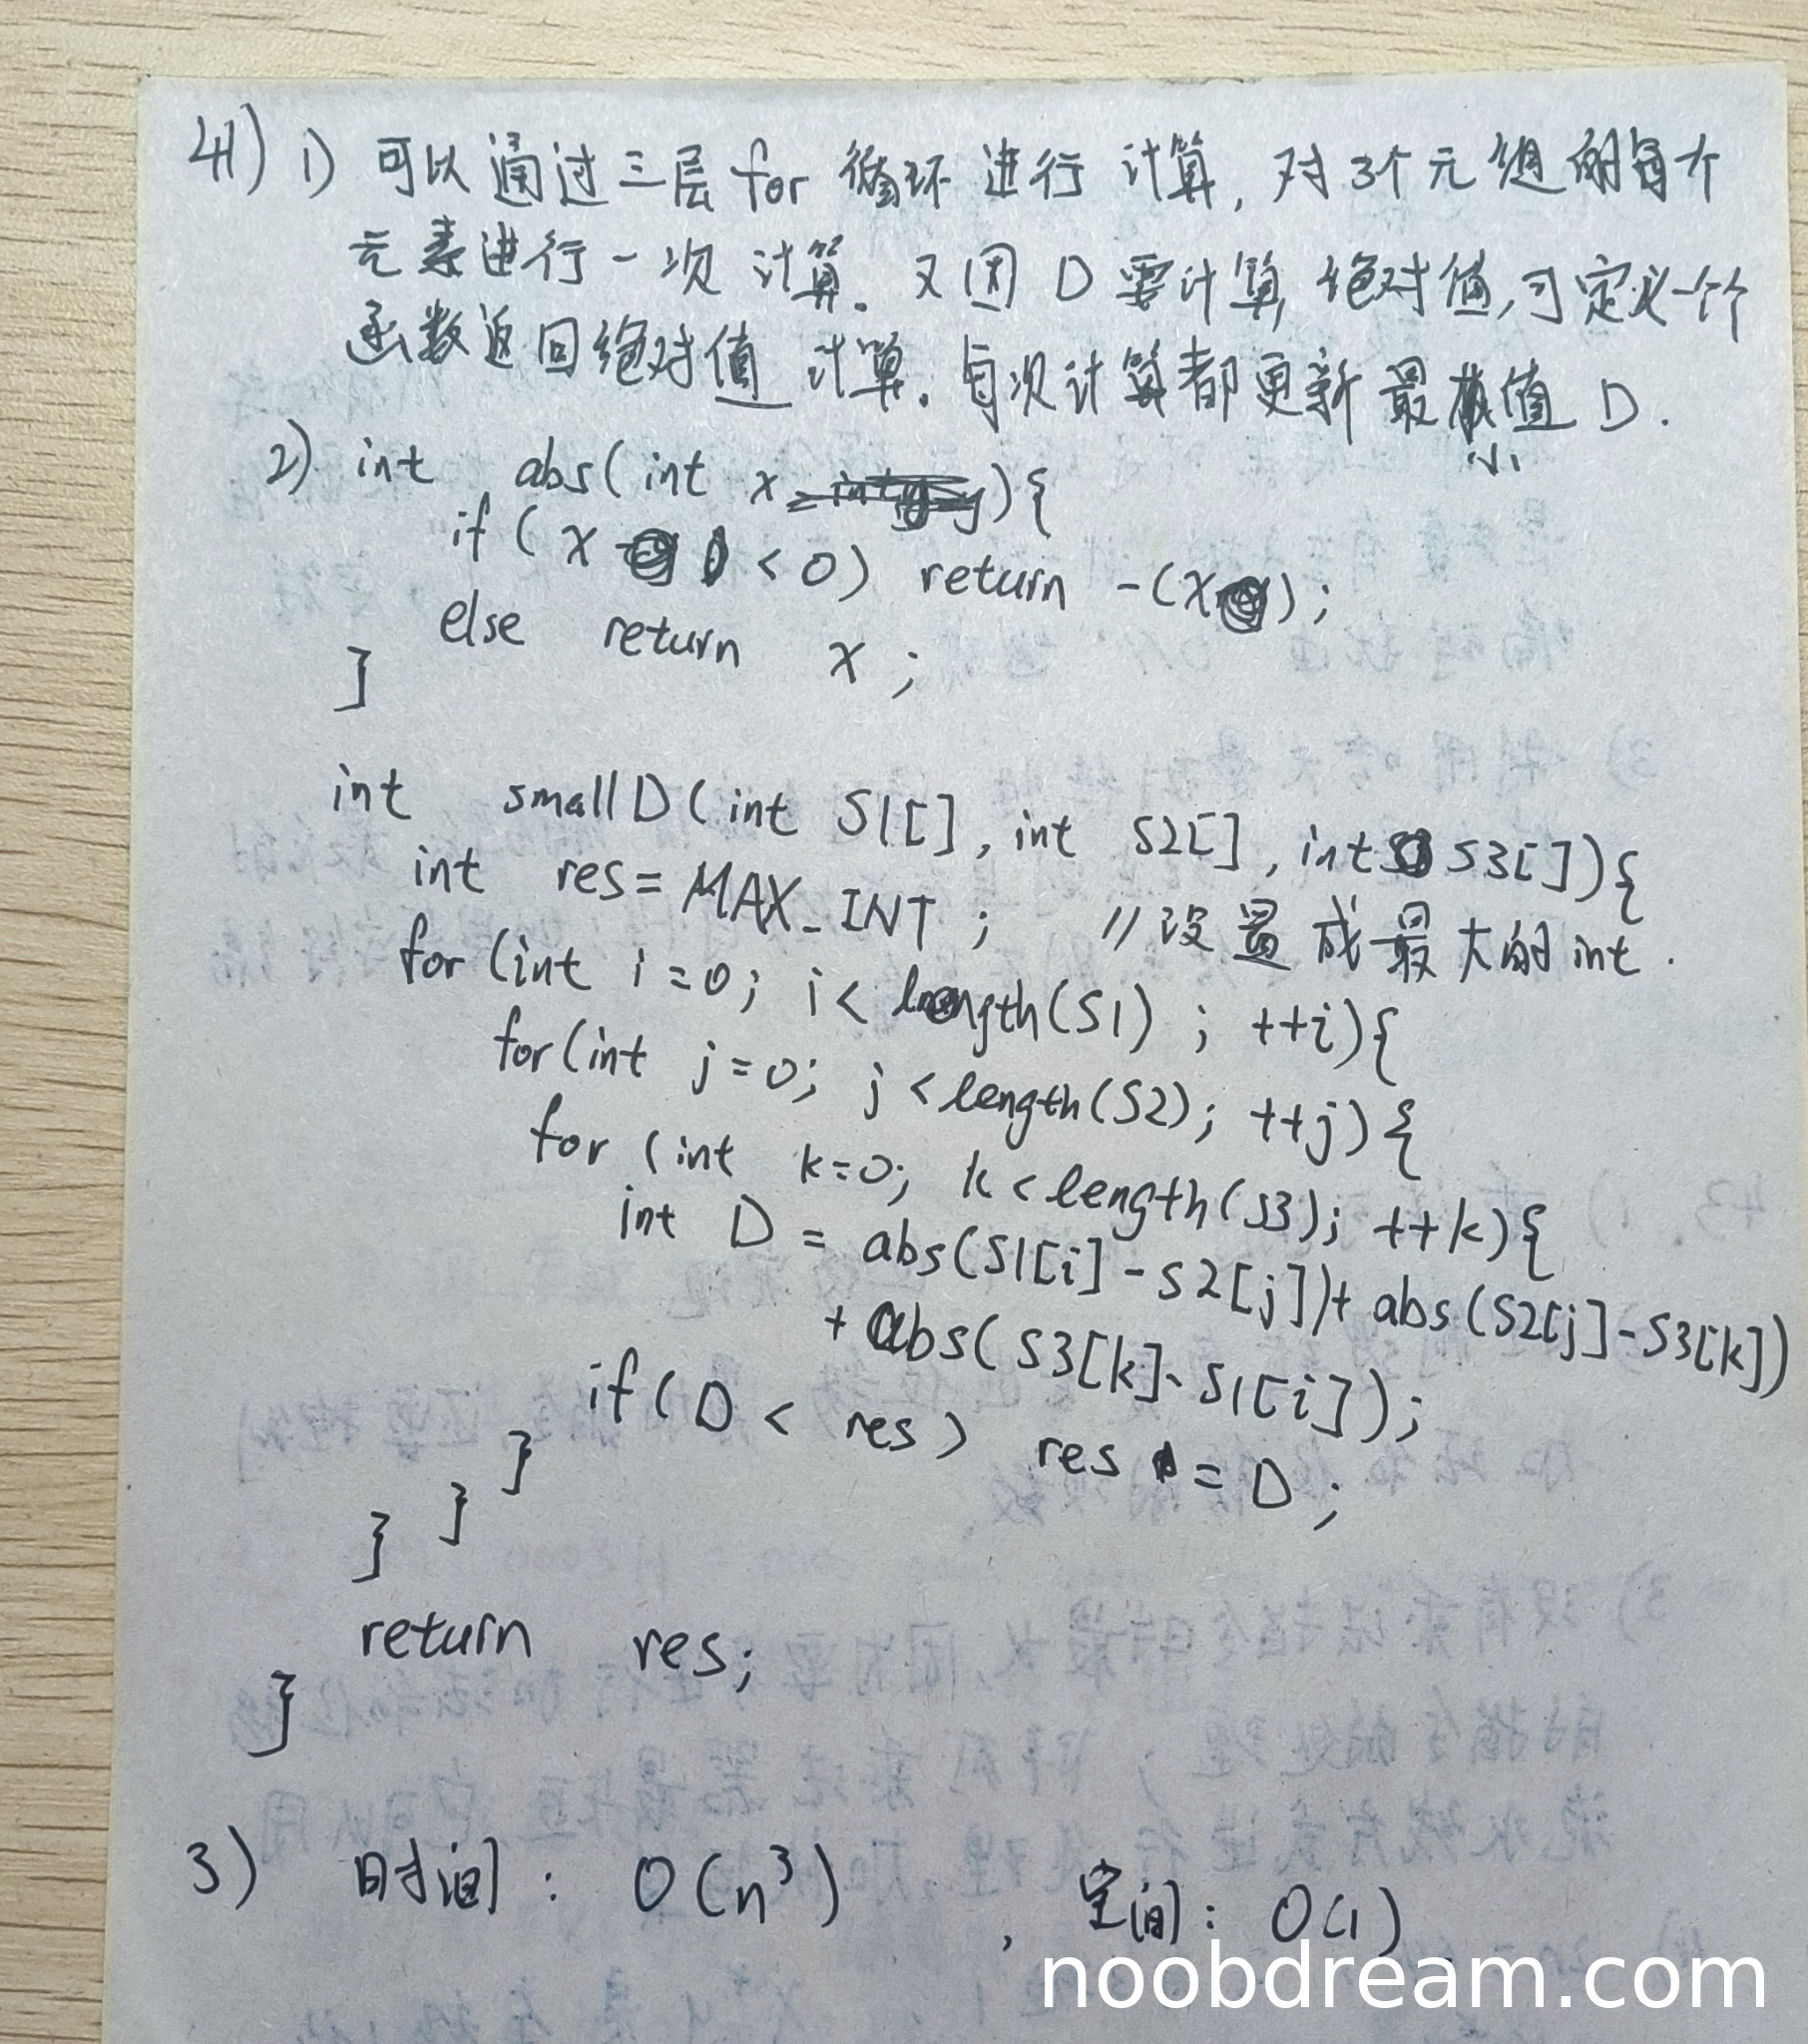 41) 1) 可以通过三层for循环进行计算, 对3个元组的每个
元素进行一次计算。又因D要计算绝对值,可定义一个
函数返回绝对值计算。每次计算都更新最小值D.
2) int abs(int x){
if(x < 0) return -(x);
else return x;
}
int smallD(int S1[], int S2[], int S3[]){
int res = MAX_INT; //设置成最大的int.
for(int i=0; i< length(S1); ++i){
for(int j=0; j<length(S2); ++j){
for (int k=0; k<length(S3); ++k){
int D = abs(S1[i]-S2[j])+ abs(S2[j]-S3[k])
+ abs(S3[k]-S1[i]);
if(D < res) res = D;
}
}
}
return res;
}
3) 时间: O(n³), 空间: O(1)
noobdream.com